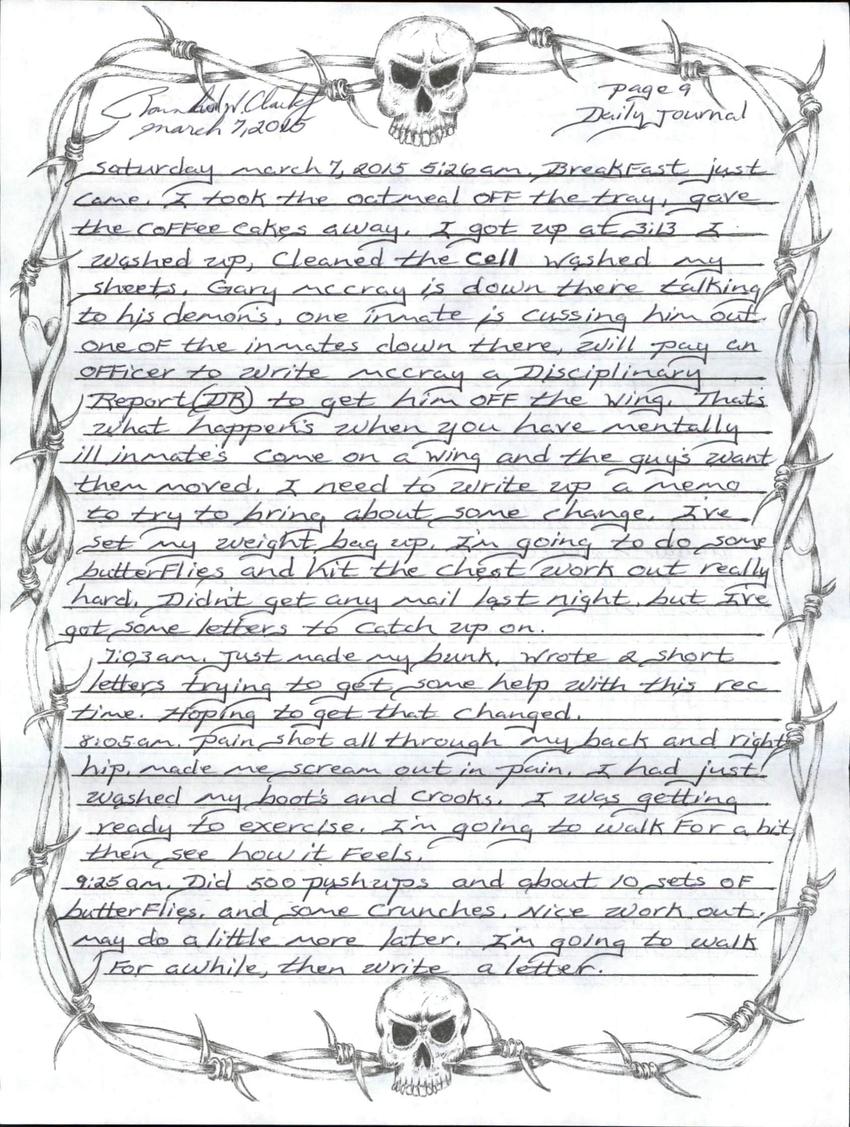 Ronald W. Clark Jr
page 9
March 7, 2015
Daily Journal
Saturday march 7, 2015 5:26am. BreakFast just
came. I took the oatmeal OFF the tray, gave
the coFFee cakes away. I got up at 3:13 I
washed up, Cleaned the cell washed my
sheets. Gary mccray is down there talking
to his demon's, one inmate is cussing him out
one oF the inmates down there, will pay an
OFFicer to write mccray a Disciplinary
Report (DR) to get him OFF the wing. Thats
what happen's when you have mentally
ill inmate's come on a wing and the guy's want
them moved. I need to write up a memo
to try to bring about some change. I've
set my weight bag up. I'm going to do some
butterFlies and hit the chest work out really
hard. Didn't get any mail last night, but I've
got some letters to catch up on.
7:03am. Just made my bunk, wrote 2 short
letters trying to get some help with this rec
time. Hoping to get that changed.
8:05am. pain shot all through my back and right
hip, made me scream out in pain. I had just
washed my boot's and crooks. I was getting
ready to exercise. I'm going to walk For a bit
then see how it Feels.
9:25am. Did 500 pushups and about 10 sets oF
butterFlies, and some crunches. Nice work out.
may do a little more later. I'm going to walk
For awhile, then write a letter.